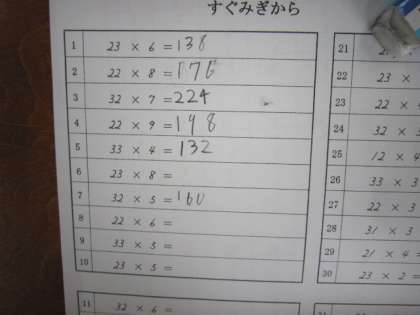 すぐみぎから
1 23 × 6 = 138
2 22 × 8 = 176
3 32 × 7 = 224
4 22 × 9 = 198
5 33 × 4 = 132
6 23 × 8 =
7 32 × 5 = 160
8 22 × 6 =
9 33 × 5 =
10 23 × 5 =
11 32 × 6 =
21
22 23 ×
23 22 ×
24 32 ×
25 12 × 4
26 33 × 3
27 22 × 3
28 31 × 3
29 21 × 4 =
30 23 × 2 =